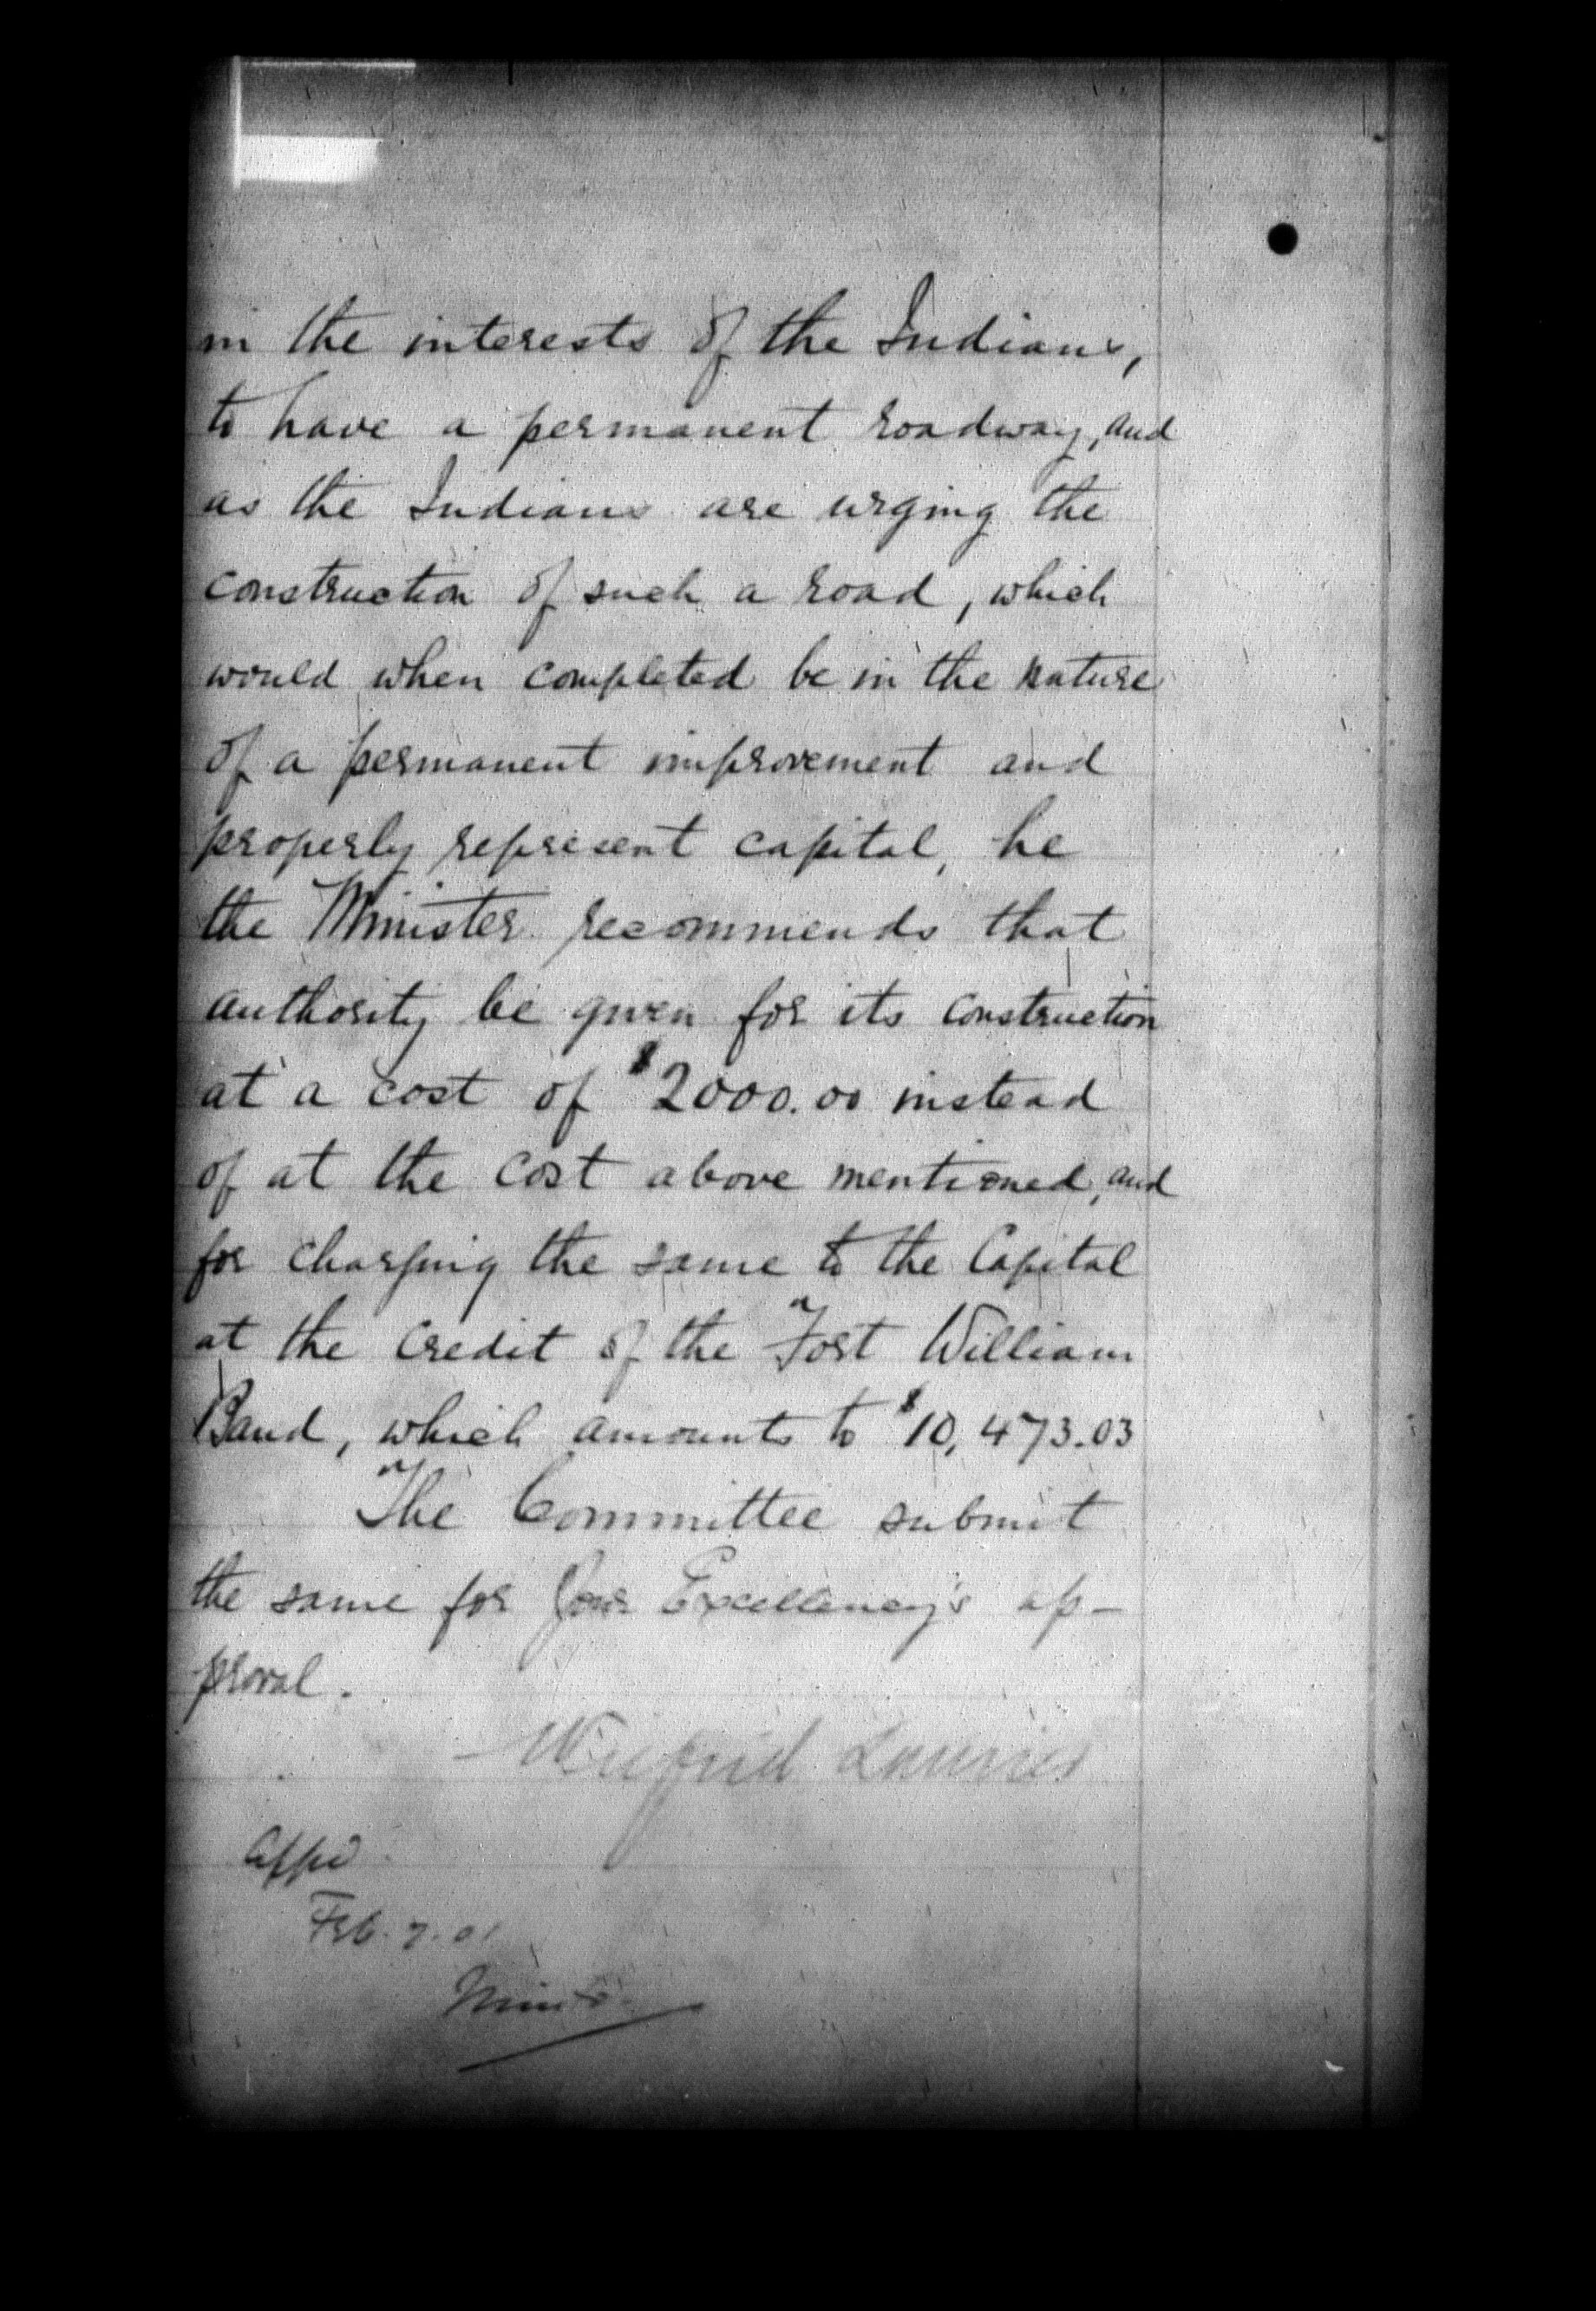 in the interests of the Indians,
to have a permanent roadway, and
as the Indians are urging the
construction of such a road, which
would when completed be in the nature
of a permanent improvement and
properly represent capital, he
the Minister recommends that
authority be given for its construction
at a cost of $2000.00 instead
of at the cost above mentioned, and
for charging the same to the Capital
at the credit of the Fort William
Band, which amounts to $10,473.03
The Committee submit
the same for Your Excellency's ap-
proval.
Wilfrid Laurier
Appd
Feb. 7. 01
Minto